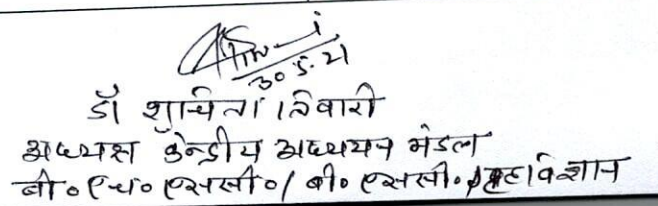 30.5.21
डॉ शुचिता तिवारी
अध्यक्ष केन्द्रीय अध्ययन मंडल
बी॰एच॰एससी॰/बी॰एससी॰गृहविज्ञान